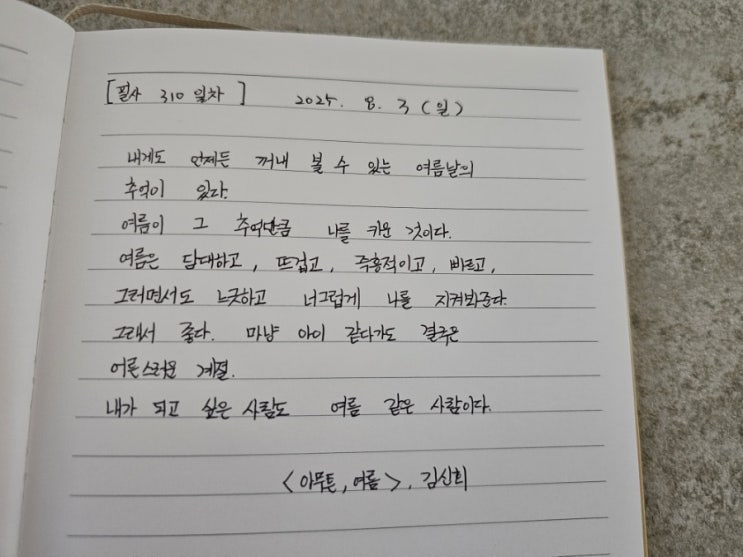 [필사 310일차] 2025. 8. 3 (일)
내게도 언제든 꺼내 볼 수 있는 여름날의
추억이 있다.
여름이 그 추억만큼 나를 키운 것이다.
여름은 담대하고, 뜨겁고, 즉흥적이고, 빠르고,
그러면서도 느긋하고 너그럽게 나를 지켜봐준다.
그래서 좋다. 마냥 아이 같다가도 결국은
어른스러운 계절.
내가 되고 싶은 사람도 여름 같은 사람이다.
<아무튼, 여름>, 김신회